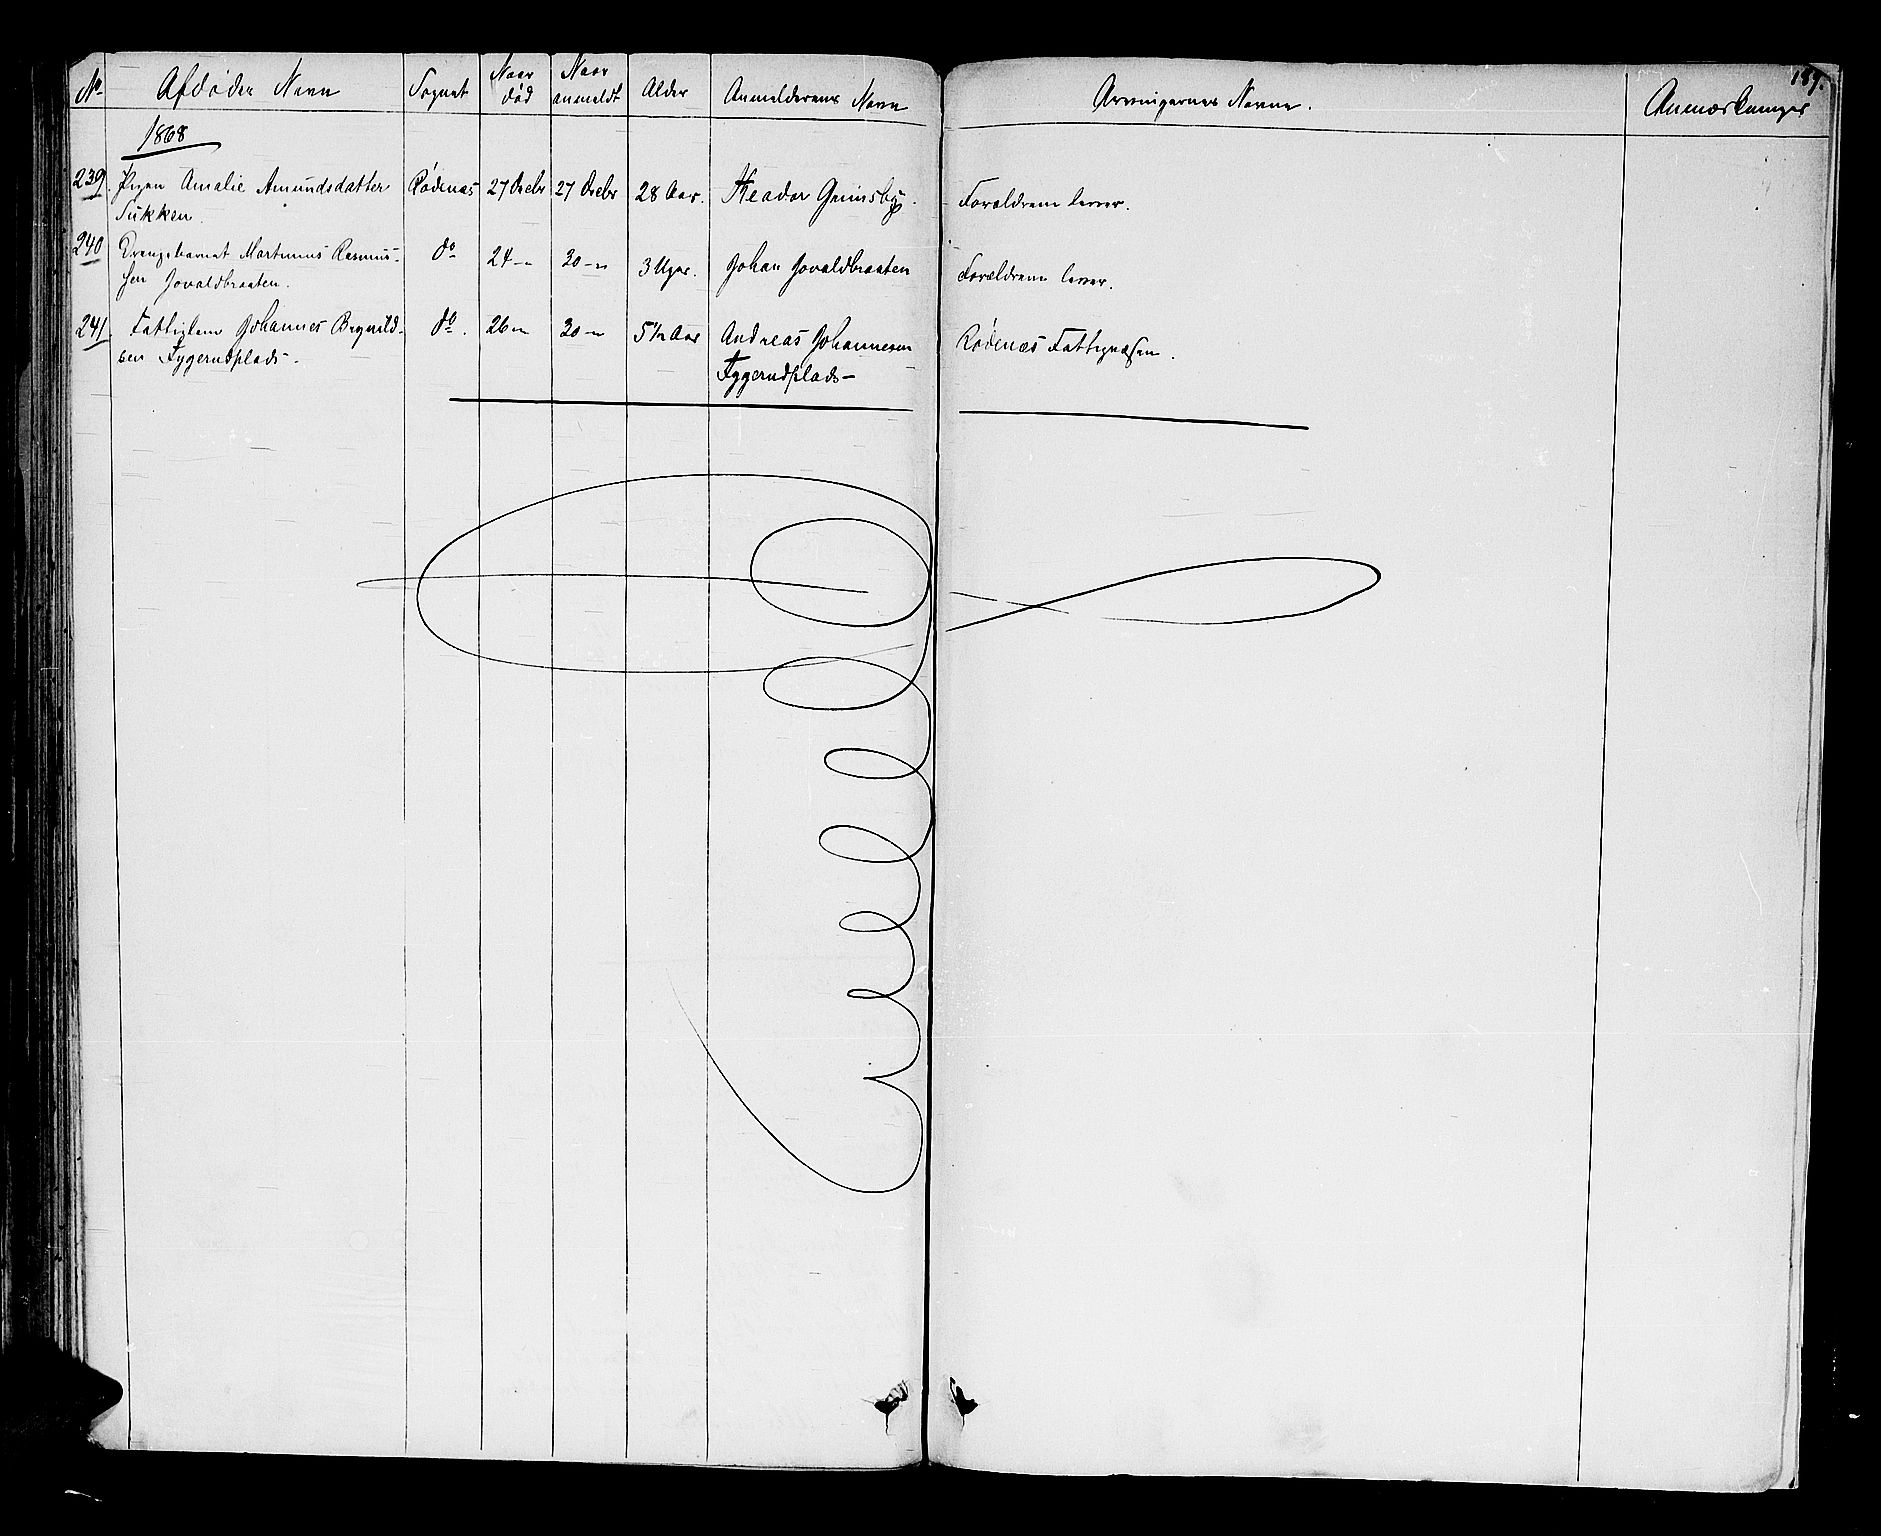 187.
No Afdødes Navn Sognet Naar død Naar anmeldt Alder Anmelderens Navn Arvingernes Navne. Anmærkninger
1868
239. Pigen Amalie Amundsdatter Rødenæs 27 Decbr 27 Decbr 28 Aar. Theodor Grimsby. Forældrene lever.
Sukken.
240 Drengebarnet Martinus Rasmus- do 24 - 30 - 3 Uger. Johan Jovaldbraaten Forældrene lever.
sen Jovaldbraaten.
241. Fattiglem Johannes Brynild- do. 26 - 30 - 5½ Aar Andreas Johannesen Rødenæs Fattigvæsen.
sen Tyggerudplads. Tyggerudplads